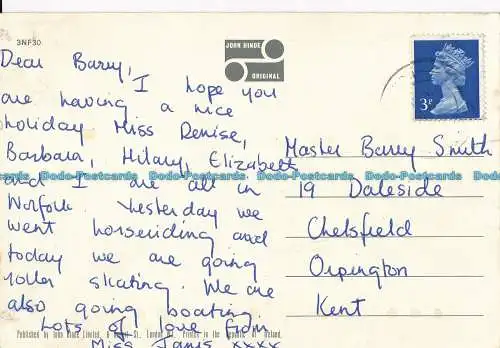 3NF30
JOHN HINDE
ORIGINAL
3P
Dear Barry,
I hope you
are having a nice
holiday Miss Denise,
Barbara, Hilary, Elizabeth
and I are all in
Norfolk. Yesterday we
went horseriding and
today we are going
roller skating. We are
also going boating
Lots of love from
Miss Janis xxxx
Master Barry Smith
19 Daleside
Chelsfield
Orpington
Kent
Dodo-Postcards Dodo-Postcards Dodo-Postcards Dodo-Postcards
Published by John Hinde Limited, St., London W1. Printed in the Republic of Ireland.